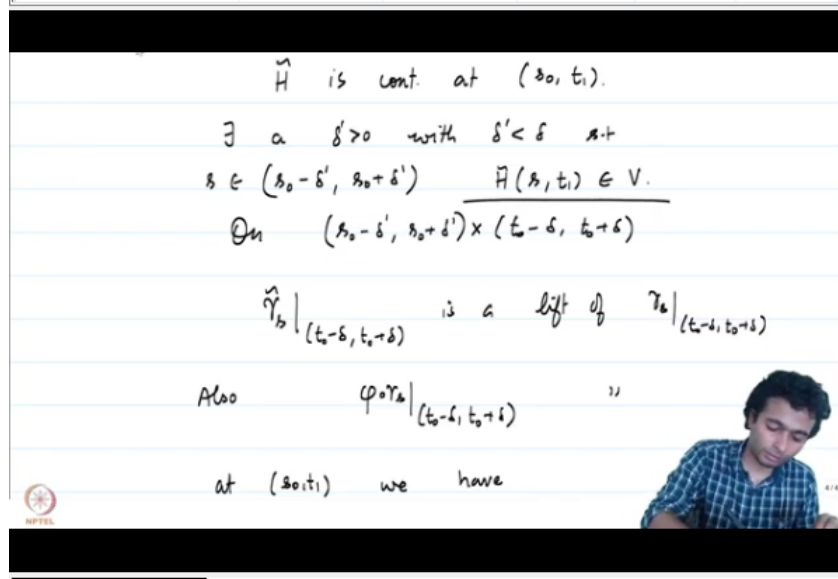 H̃ is cont. at (s₀, t₁).
∃ a δ'>0 with δ'<δ s.t
s ∈ (s₀-δ', s₀+δ') H̃(s, t₁) ∈ V.
On (s₀-δ', s₀+δ') × (t₀-δ, t₀+δ)
γ̃ₛ|(t₀-δ, t₀+δ) is a lift of γₛ|(t₀-δ, t₀+δ)
Also φ∘γₛ|(t₀-δ, t₀+δ) "
at (s₀,t₁) we have
NPTEL